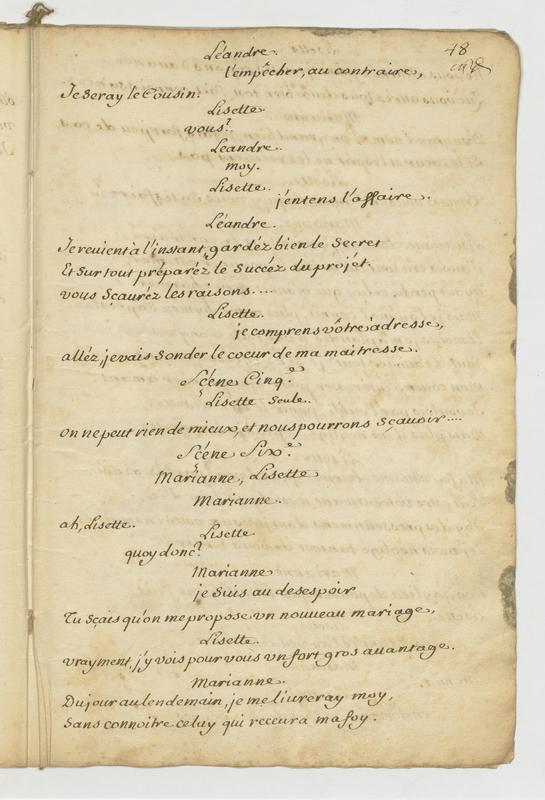 48
Léandre.
l'empêcher, au contraire,
Je Seray le Cousin.
Lisette.
vous?
Léandre.
moy.
Lisette.
j'entens l'affaire.
Léandre.
Je revient à l'instant, gardéz bien le Secret
Et Sur tout préparéz le Succéz du projét.
vous Sçauréz les raisons....
Lisette.
je comprens vôtre adresse,
alléz, je vais Sonder le coeur de ma maitresse.
Scéne Cinq.e
Lisette Seule.
on ne peut rien de mieux, et nous pourrons Sçavoir....
Scéne Six.e
Marianne, Lisette
Marianne.
ah, Lisette.
Lisette
quoy donc?
Marianne
je Suis au desespoir
Tu Sçais qu'on me propose vn nouveau mariage,
Lisette.
vrayment, j'y vois pour vous vn fort gros auantage.
Marianne.
Du jour au lendemain, je me liureray moy,
Sans connoitre celuy qui receura ma foy.